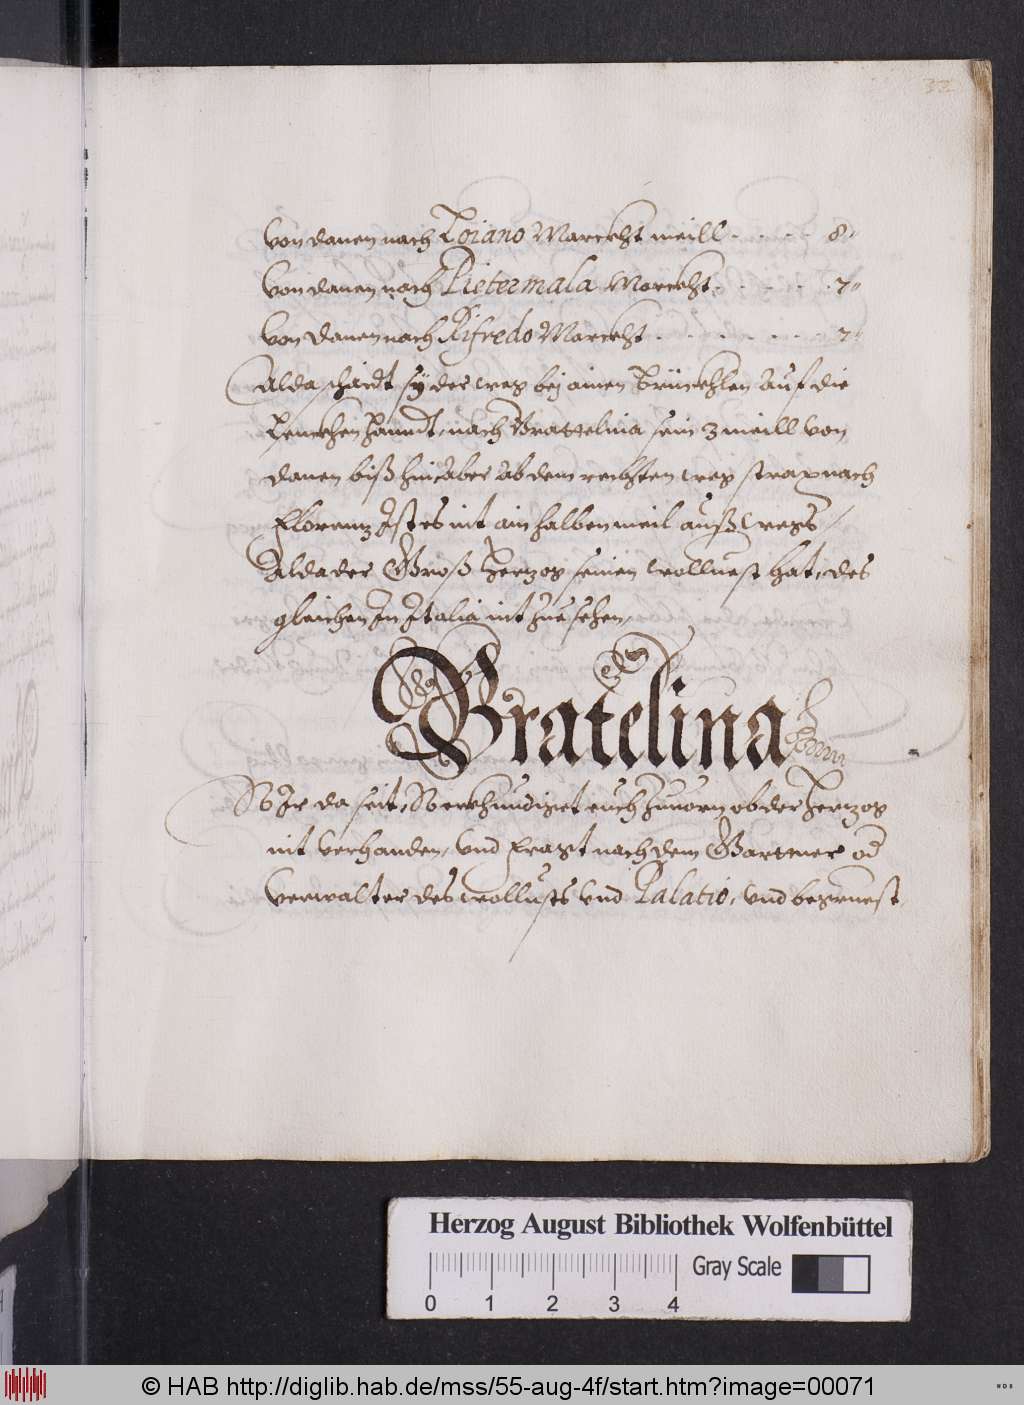 32
Von danen nach Loiano Marckht meill . . . . . 8.
Von danen nach Pietermala Marckht . . . . . 7.
Von danen nach Rifredo Marckht . . . . . . . 7.
Alda schaidt sy der weg bej ainen Brünckhlen auf die
Lenckhen Hanndt, nach Brattelina sein 3 meill von
danen biß hin aber ab dem rechten weg strax nach
Florenz Ist es nit ain halben meil auß wegs /
Alda der Groß Herzog seinen wollust hat, des
gleichen In Italia nit zue sehen,
Bratelina
So Ir da seit, So erkhundiget euch zuuorn ob der Herzog
nit verhanden, vnd fragt nach dem Gartner od
Verwalter des wollusts vnd Palatio, vnd begruest,
Herzog August Bibliothek Wolfenbüttel
Gray Scale
0 1 2 3 4
© HAB http://diglib.hab.de/mss/55-aug-4f/start.htm?image=00071